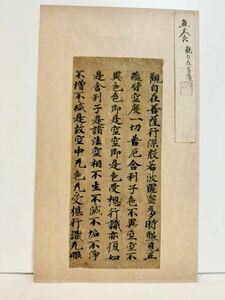 觀自在菩薩行深般若波羅蜜多時照見五
蘊皆空度一切苦厄舍利子色不異空空不
異色色即是空空即是色受想行識亦復如
是舍利子是諸法空相不生不滅不垢不淨
不增不減是故空中无色无受想行識无眼